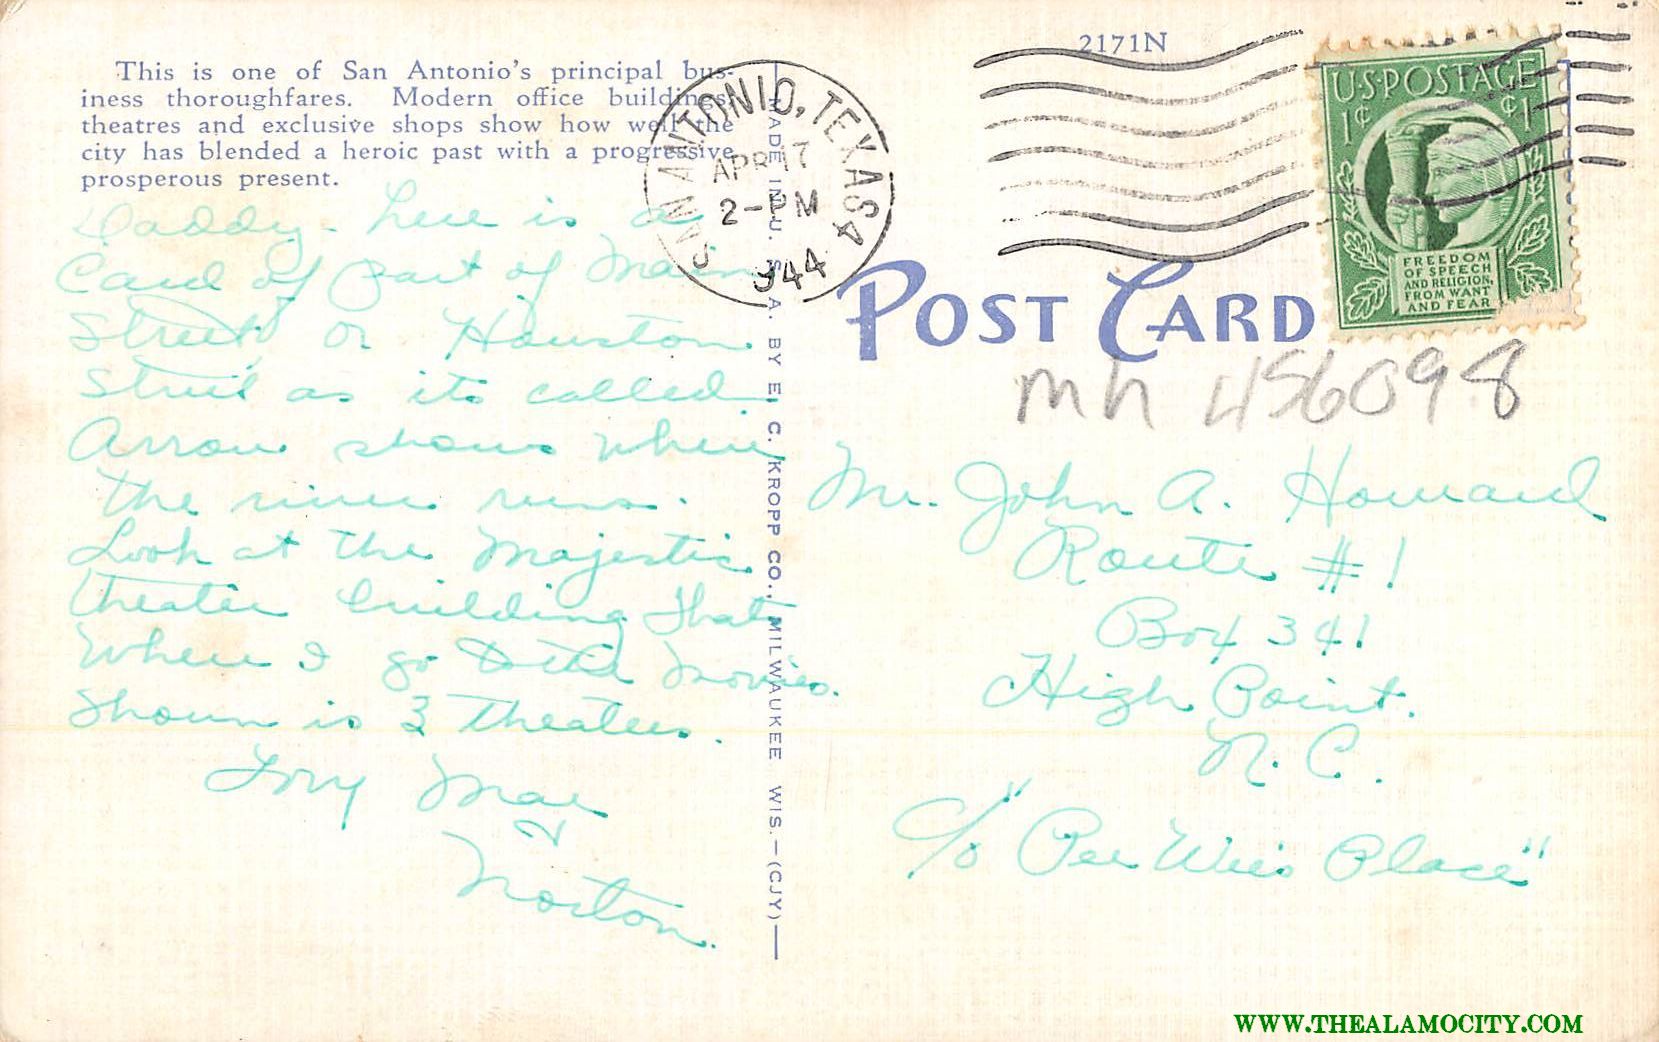 2171N
This is one of San Antonio's principal bus-
iness thoroughfares. Modern office buildings,
theatres and exclusive shops show how well the
city has blended a heroic past with a progressive,
prosperous present.
Daddy - here is a
Card of Part of Main
Street or Houston
Street as its called
Arrow shows where
the river runs.
Look at the Majestic
theater building that
Where I go to the Movies.
Shown is 3 theaters.
Mae
Norton.
MADE IN U. S. A. BY E. C. KROPP CO., MILWAUKEE, WIS.—(CJY)
SAN ANTONIO, TEXAS 4
APR 17
2-PM
1944
U·S·POSTAGE
1¢ ¢1
FREEDOM
OF SPEECH
AND RELIGION,
FROM WANT
AND FEAR
POST CARD
mn 456098
Mr. John A. Howard
Route #1
Box 341
High Point.
N. C.
c/o "Pee Wee's Place"
WWW.THEALAMOCITY.COM